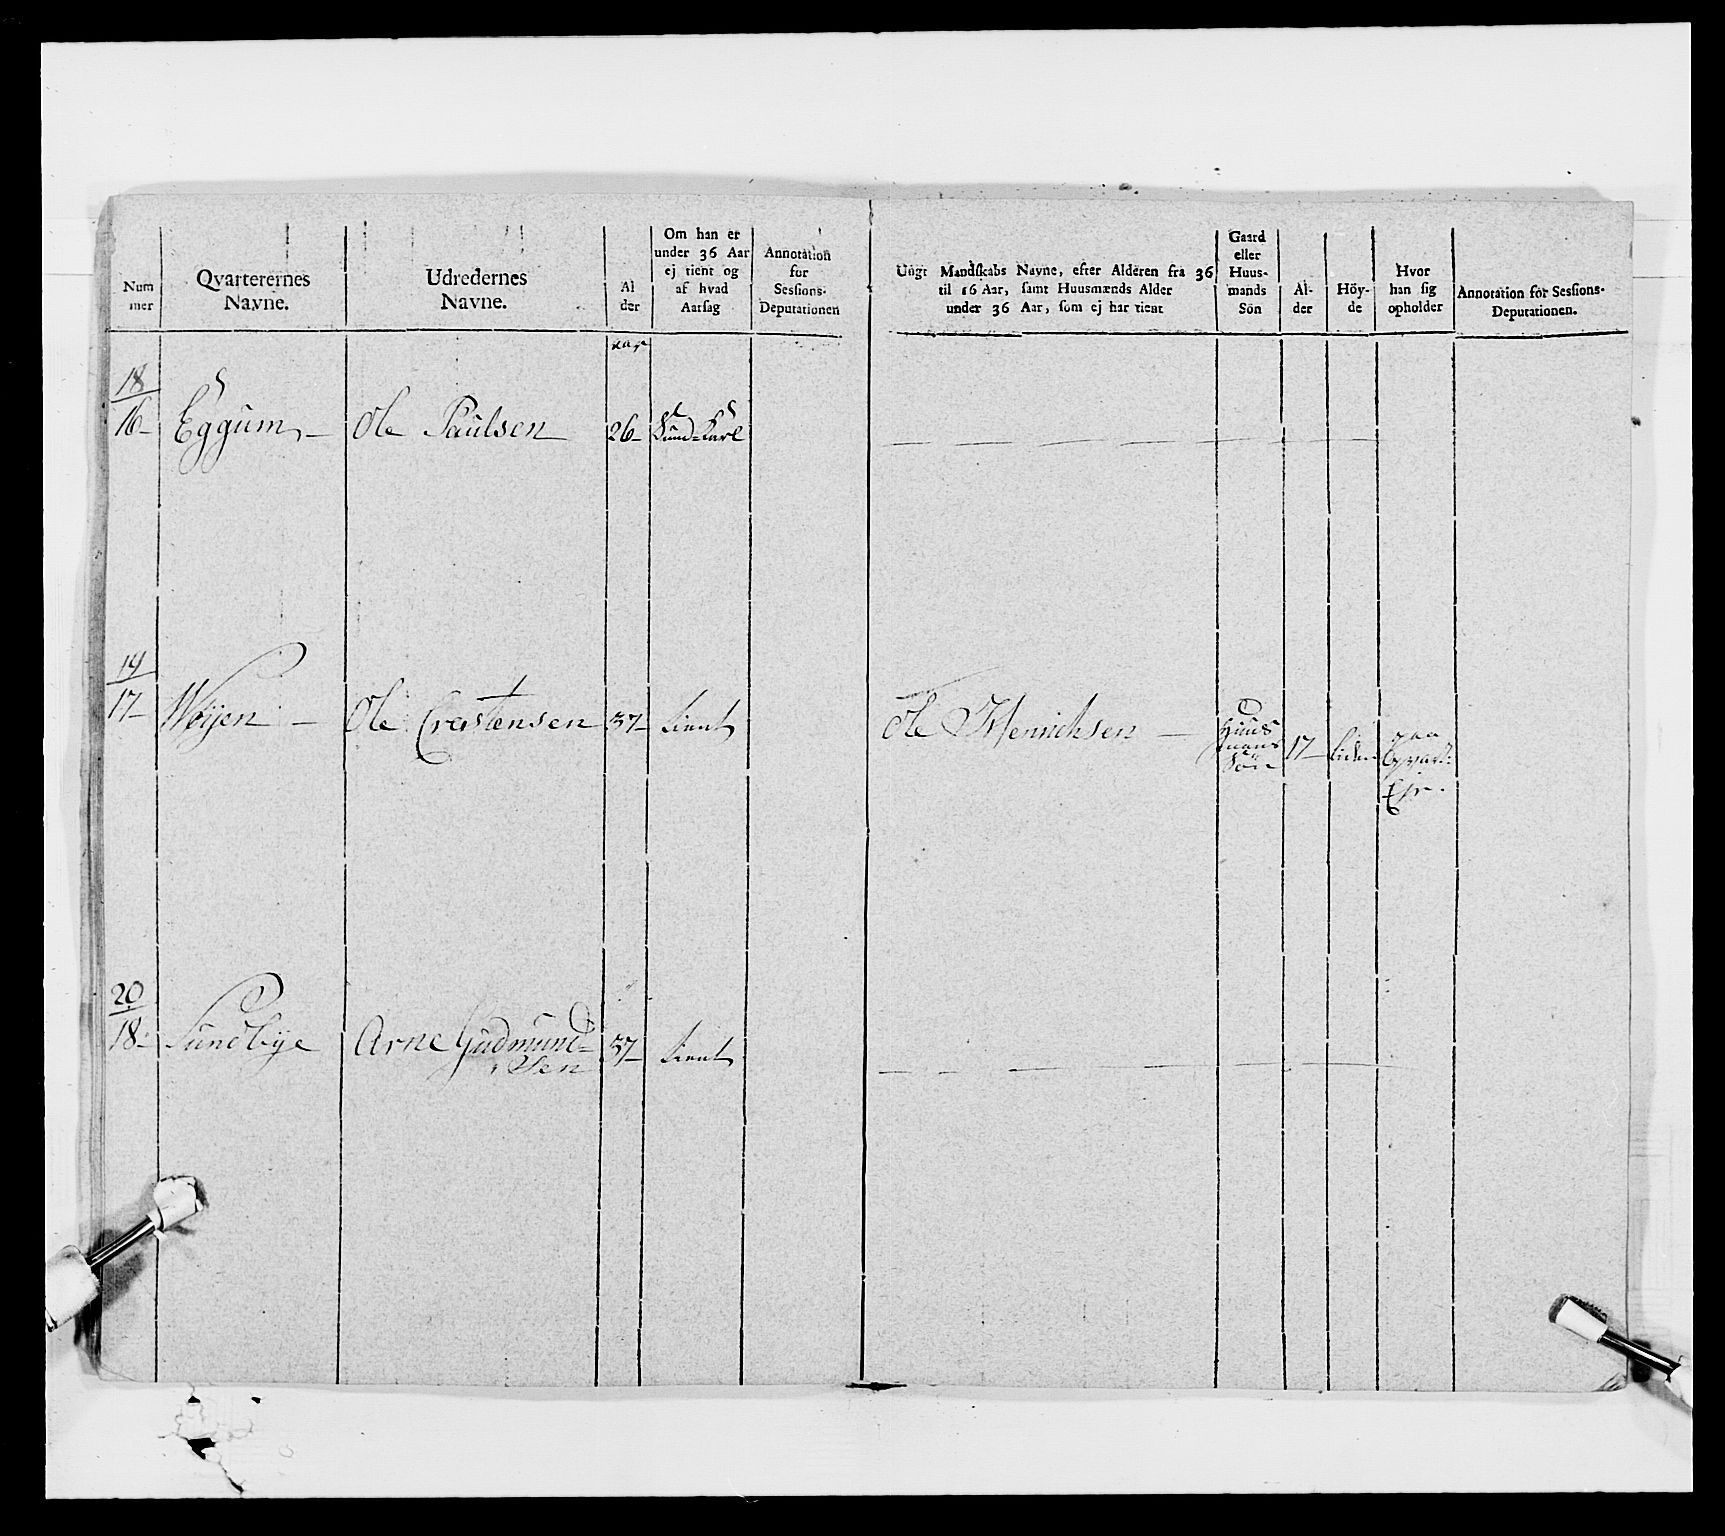 Num
mer
Qvarterernes
Navne.
Udredernes
Navne.
Al
der
Om han er
under 36 Aar
ej tient og
af hvad
Aarsag
Annotation
for
Sessions-
Deputationen
Ungt Mandskabs Navne, efter Alderen fra 36
til 16 Aar, samt Huusmænds Alder
under 36 Aar, som ej har tient
Gaard
eller
Huus-
mands
Sön
Al-
der
Höy-
de
Hvor
han sig
opholder
Annotation for Sessions-
Deputationen.
aar
18
16- Eggum - Ole Paulsen 26-
19
17- Wøyen - Ole Crestensen 37- tient Ole Henrichsen - Huus
mans
Søn 17- liden paa
Qvart:
20
18- Sundbye Arne Gudmund-
sen 37- tient